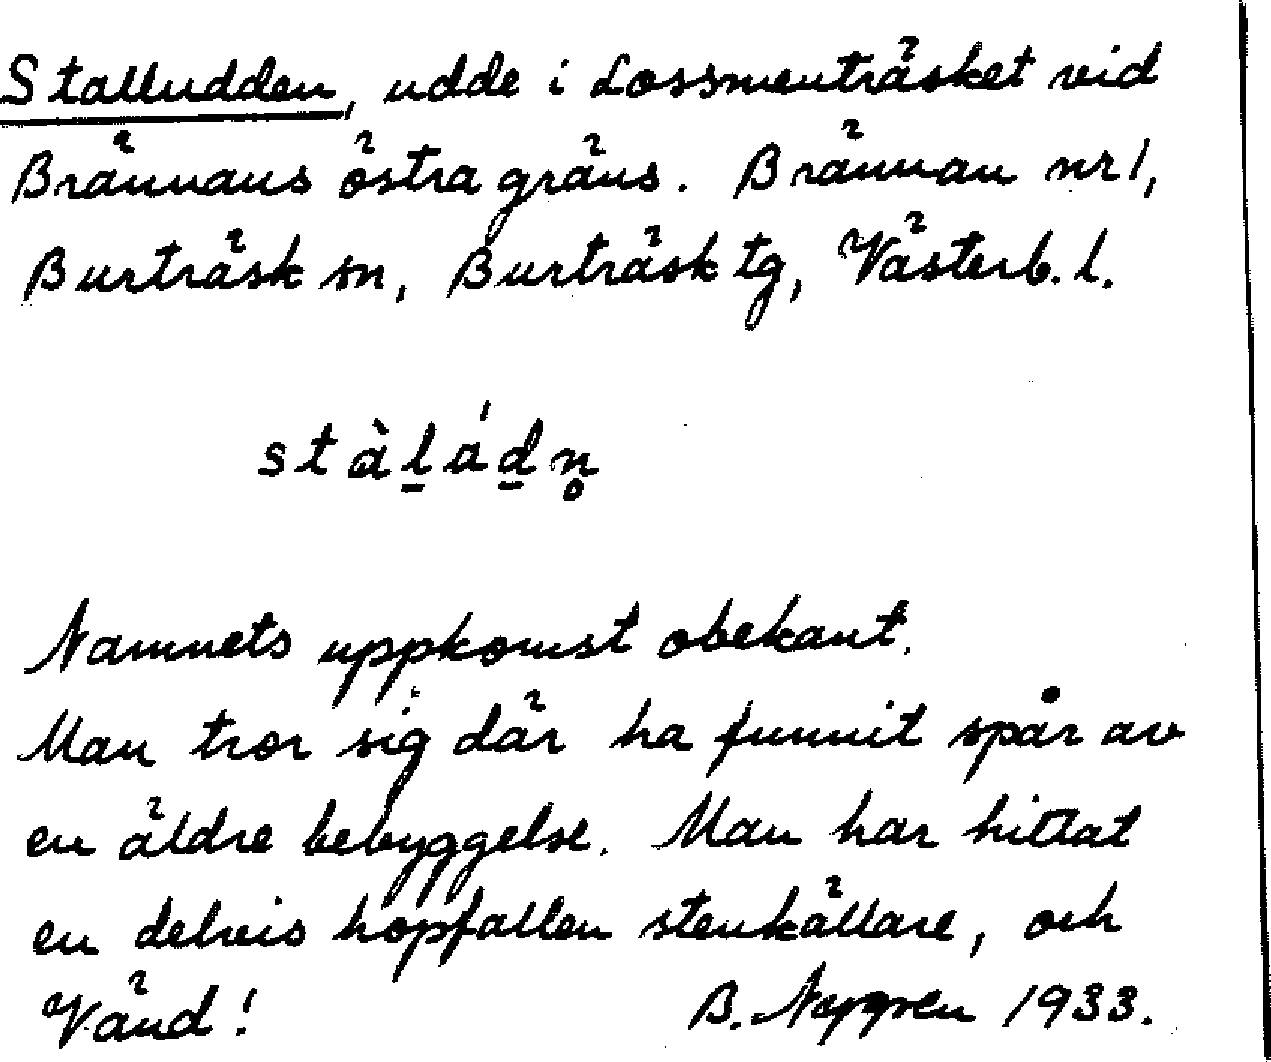 Stalludden, udde i Lossmenträsket vid
Brännans östra gräns. Brännan nr 1,
Burträsk sn, Burträsk tg, Västerb. l.
stàl̲ád̲n̥
Namnets uppkomst obekant.
Man tror sig där ha funnit spår av
en äldre bebyggelse. Man har hittat
en delvis hopfallen stenkällare, och
Vänd! B. Nygren 1933.